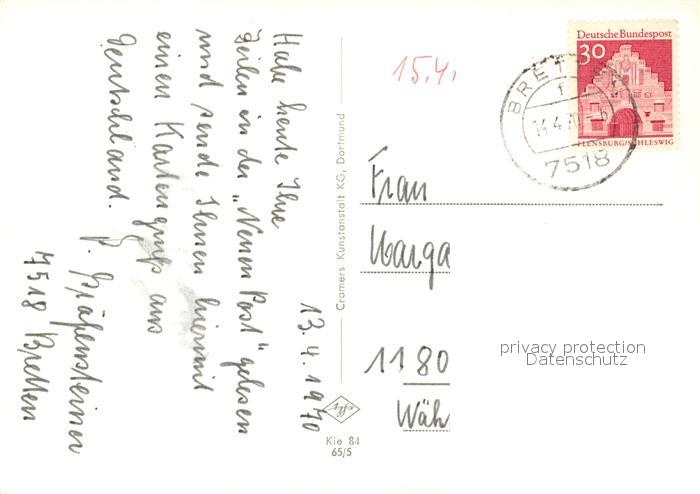 13.4.1970
Habe heute Ihre
Zeilen in der „Neuen Post" gelesen
und sende Ihnen hiermit
einen Kartengruß aus
Deutschland.
7518 Bretten
Cramers Kunstanstalt KG, Dortmund
Kie 84
65/5
15.4.
Deutsche Bundespost
30
FLENSBURG/SCHLESWIG
BRETTEN
14.4.70
7518
Frau
Marga
1180
Wäh
privacy protection
Datenschutz